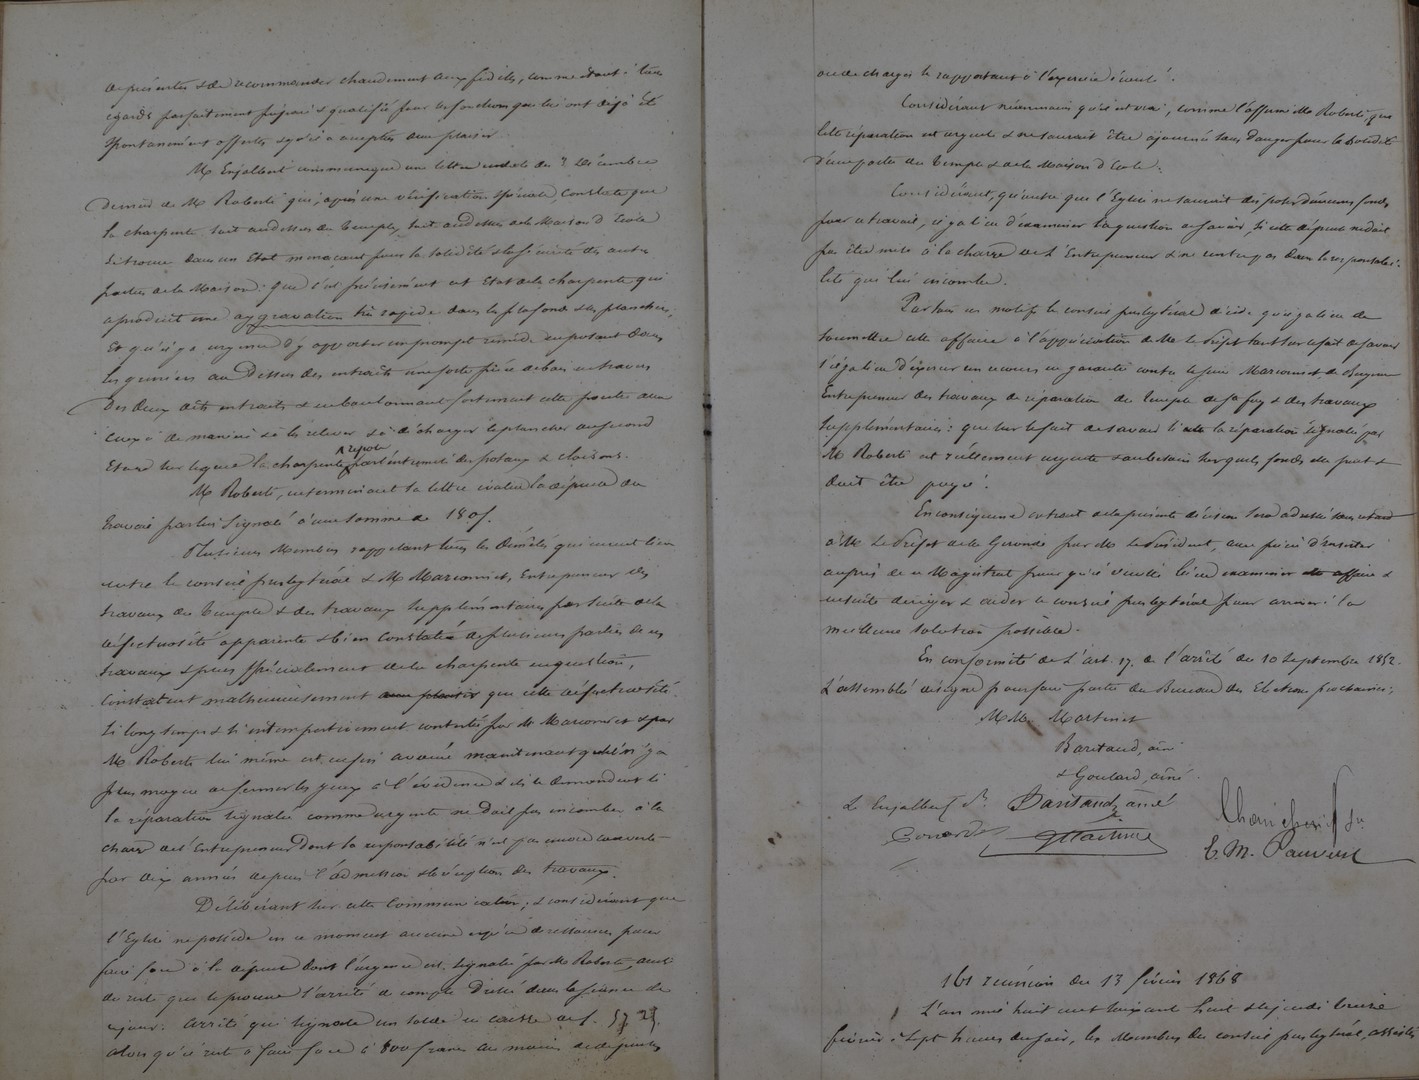 représenter & de recommander chaudement aux fidèles, comme étant à tous
égards parfaitement préparé & qualifié pour les fonctions qui lui ont déjà été
spontanément offertes & qu'il a acceptées avec plaisir.
M. Enjalbert communique une lettre en date du 7 Décembre
dernier de M. Roberti qui, après une vérification spéciale, constate que
la charpente tant au dessus du Temple, tant au dessus de la Maison d'École
se trouve dans un état menaçant pour la solidité & la sécurité des autres
parties de la Maison : que c'est précisément cet état de la charpente qui
a produit une aggravation très rapide dans les plafonds & les planchers,
et qu'il y a urgence d'y apporter un prompt remède en posant dans
les greniers au dessus des entraits une forte pièce de bois en travers
des deux dits entraits & en boulonnant fortement cette poutre avec
ceux-ci de manière à les relever & à décharger le plancher du second
étage sur lequel la charpente repose par l'extrémité des potaux & cloisons.
M. Roberti, en terminant sa lettre évalue la dépense du
travail par lui signalé à une somme de 180f.
Plusieurs Membres rappelant tous les démêlés qui eurent lieu
entre le conseil presbytéral & M. Marcornet, Entrepreneur des
travaux du Temple & des travaux supplémentaires par suite de la
défectuosité apparente & bien constatée de plusieurs parties de ces
travaux & plus spécialement de la charpente en question,
constatent malheureusement avec plaisir que cette défectuosité
si longtemps & si intempestivement contestée par M. Marcornet & par
M. Roberti lui même est enfin avérée maintenant qu'il n'y a
plus moyen de fermer les yeux à l'évidence & ils se demandent si
la réparation signalée comme urgente ne doit pas incomber à la
charge de l'Entrepreneur dont la responsabilité n'est pas encore couverte
par dix années depuis l'admission & réception des travaux.
Délibérant sur cette communication ; & considérant que
l'Eglise ne possède en ce moment aucune espèce de ressources pour
faire face à la dépense dont l'urgence est signalée par M. Roberti, ainsi
du reste que le prouve l'arrêté de compte dressé dans la séance de
ce jour : arrêté qui signale un solde en caisse de f. 57 25
alors qu'il reste à faire face à 800 francs au moins de dépenses
ou de charges se rapportant à l'exercice écoulé.
Considérant néanmoins qu'il est vrai, comme l'affirme M. Roberti, que
cette réparation est urgente & ne saurait être ajournée sans danger pour la solidité
d'une partie du Temple & de la Maison d'École.
Considérant, qu'outre que l'Eglise ne saurait disposer d'aucuns fonds
pour ce travail, il y a lieu d'examiner la question de savoir, si cette dépense ne doit
pas être mise à la charge de l'Entrepreneur & ne rentre pas dans la responsabi-
lité qui lui incombe.
Par tous ces motifs le conseil presbytéral décide qu'il y a lieu de
soumettre cette affaire à l'appréciation de M. le Préfet tant sur le fait de savoir
s'il y a lieu d'exercer un recours en garantie contre le sieur Marcornet de Bergerac
Entrepreneur des travaux de réparation du Temple de Ste foy & des travaux
supplémentaires : que sur le fait de savoir si la réparation signalée par
M. Roberti est réellement urgente & au besoin sur quels fonds elle peut &
doit être payée.
En conséquence extrait de la présente décision sera adressé sans retard
à M. le Préfet de la Gironde par M. le Président, avec prière d'insister
auprès de ce Magistrat pour qu'il veuille bien examiner cette affaire &
ensuite diriger & aider le conseil presbytéral pour arriver à la
meilleure solution possible.
En conformité de l'art. 17. de l'arrêté du 10 Septembre 1852.
L'assemblée désigne pour faire partie du Bureau des Elections prochaines :
MM. Martinet
Baritaud, ainé
& Goulard, aîné.
L. Enjalbert Pr. Baritaud, ainé
Martinet
C. M. Pauvert
161 réunion du 13 février 1868
L'an mil huit cent soixante huit & le jeudi treize
février à sept heures du soir, les Membres du conseil presbytéral, assistés